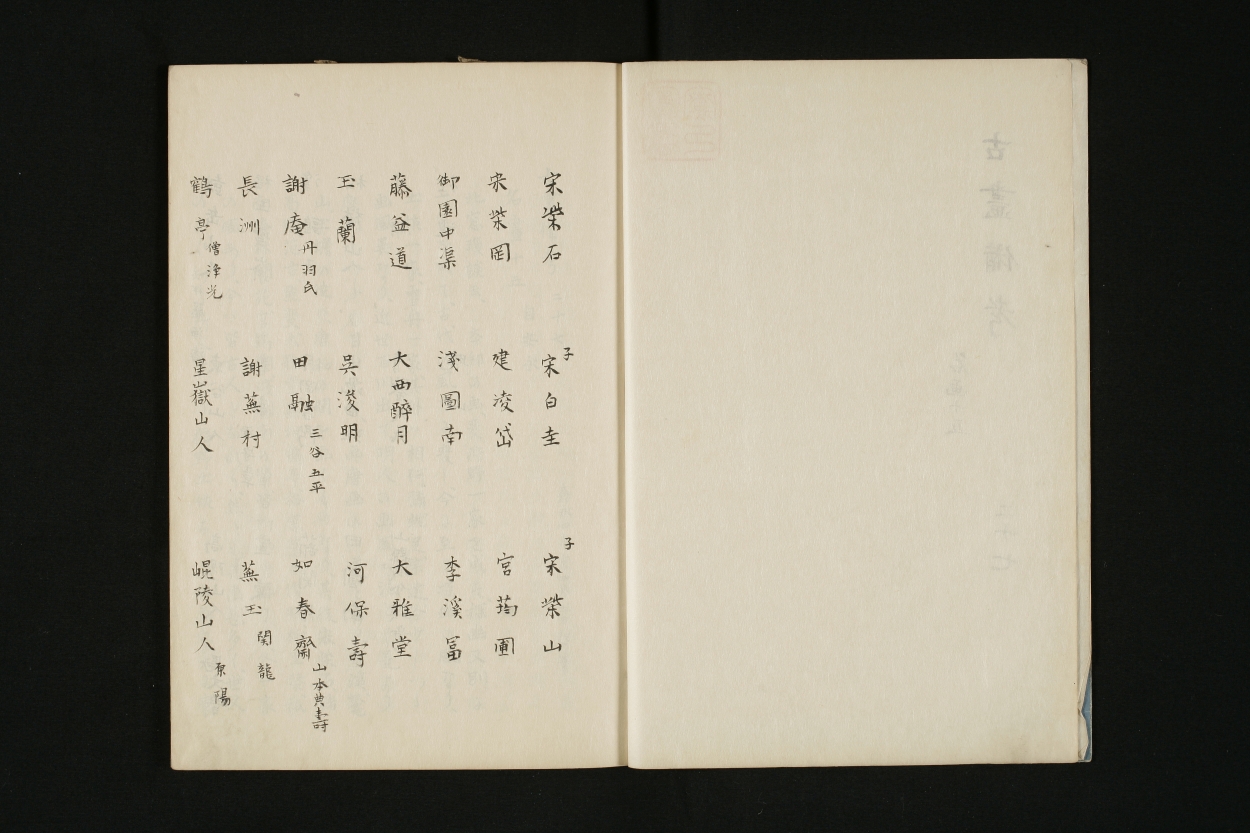 宋紫石
子 宋白圭
子 宋紫山
宋紫岡
建凌岱
宮筠圃
御園中渠
淺圖南
李溪冨
藤益道
大西醉月
大雅堂
玉蘭
呉浚明
河保壽
謝庵 丹羽氏
田融 三谷五平
如春齋 山本典壽
長洲
謝蕪村
蕪玉 関龍
鶴亭 僧淨光
星嶽山人
崐陵山人 原陽